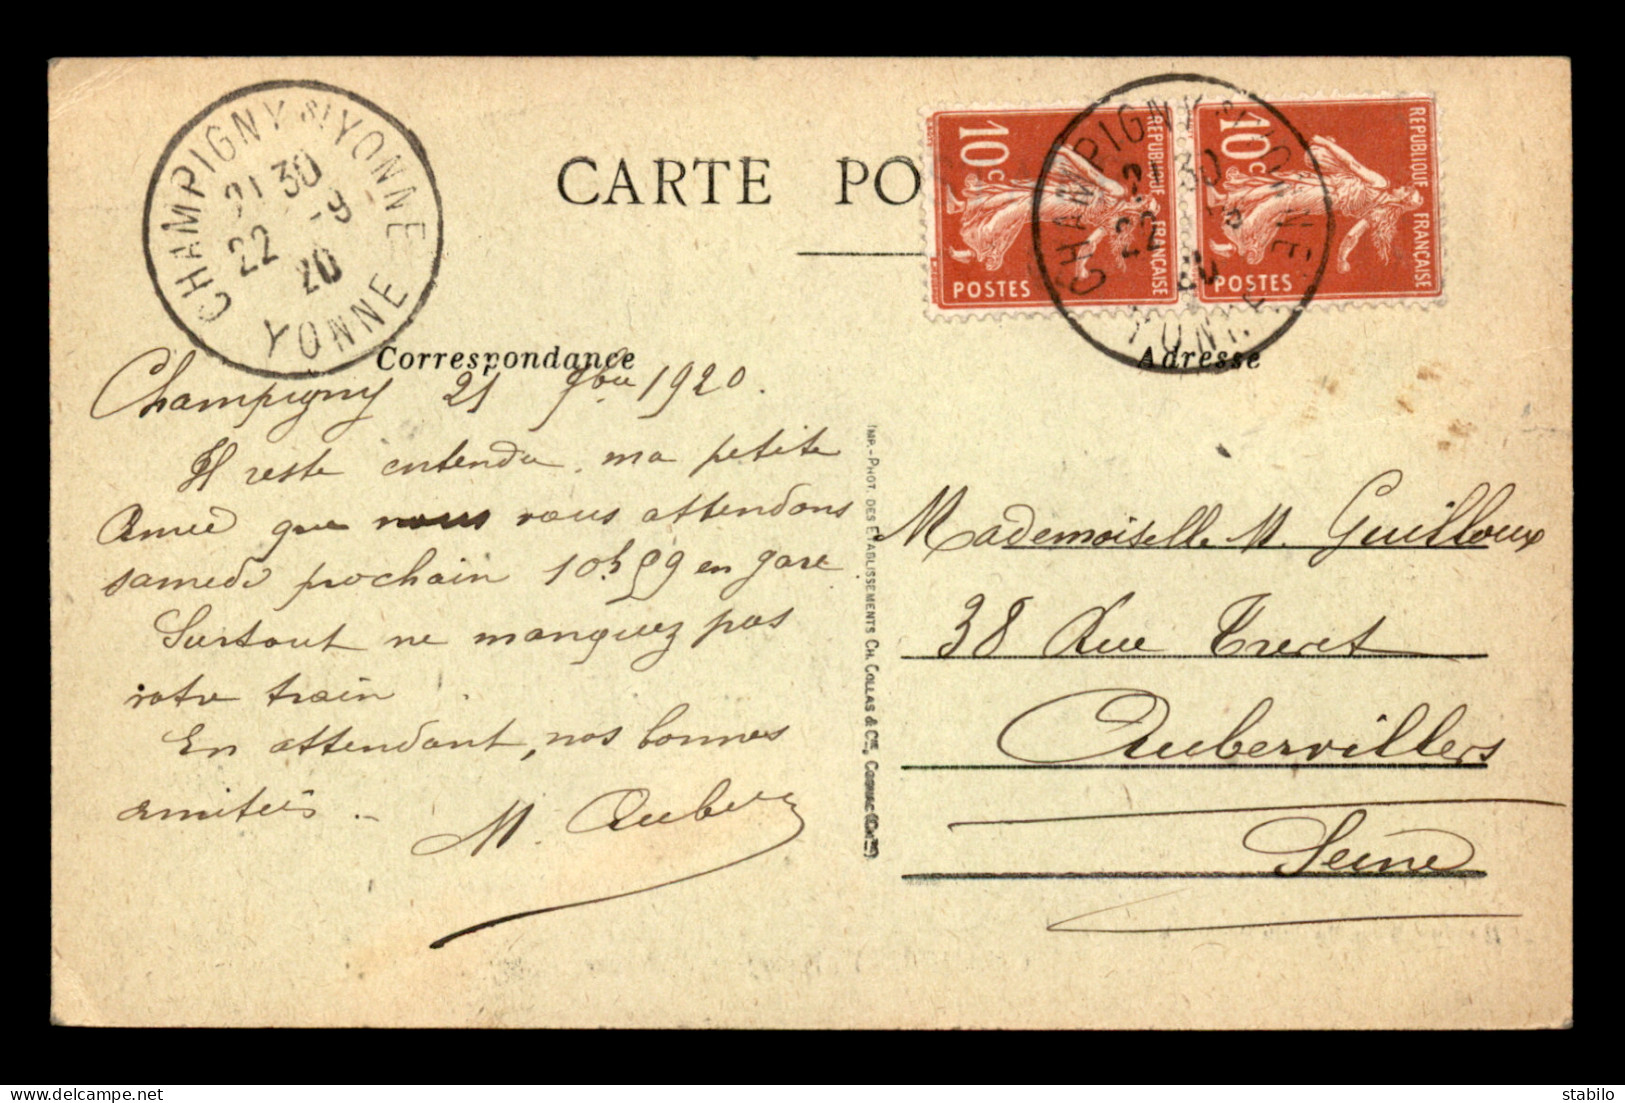 CHAMPIGNY S/YONNE
21 30
22 -9
20
YONNE
CARTE PO
REPUBLIQUE FRANÇAISE
10c
POSTES
REPUBLIQUE FRANÇAISE
10c
POSTES
CHAMPIGNY S/YONNE
YONNE
Correspondance
Adresse
Champigny 21 9bre 1920.
Il reste entendu ma petite
Amie que nous vous attendons
samedi prochain 10h59 en gare.
Surtout ne manquez pas
votre train.
En attendant, nos bonnes
amitiés.
M. Auber
IMP.-PHOT. DES ETABLISSEMENTS CH. COLLAS & Cie, COGNAC (Chte)
Mademoiselle M. Guilloux
38 Rue Trevet
Aubervillers
Seine
stabilo